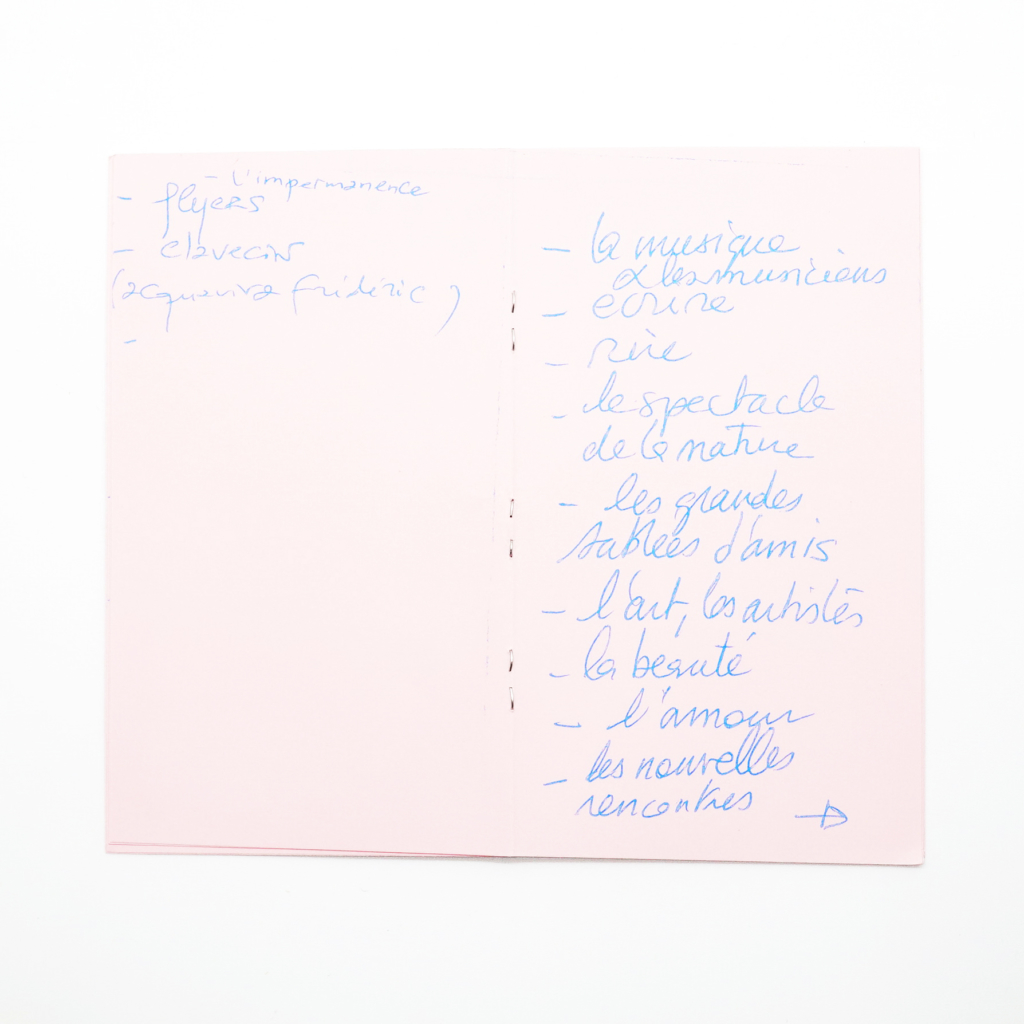 - l'impermanence
- flyers
- clavecin
(acquaviva frédéric)
-
- la musique
& les musiciens
- écrire
- rire
- le spectacle
de la nature
- les grandes
tablées d'amis
- l'art, les artistes
- la beauté
- l'amour
- les nouvelles
rencontres →